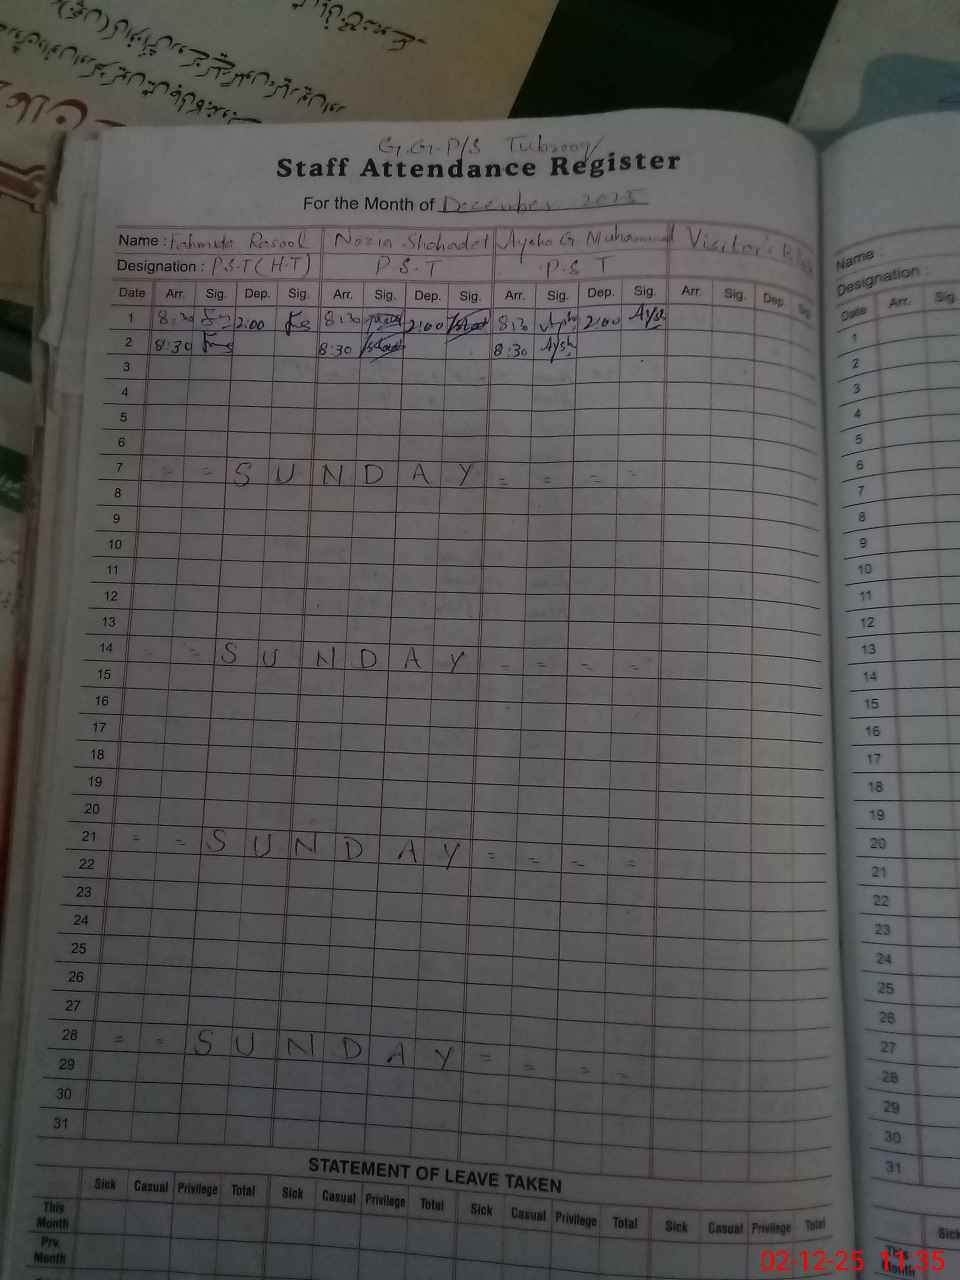 G.G.P/S Tubsoog
Staff Attendance Register
For the Month of December 2025
Name : Fahmida Rasool Nazia Shahadat Aysha G Muhammad Visitor's
Designation : P.S.T (H.T) P.S.T P.S.T
Date Arr. Sig. Dep. Sig. Arr. Sig. Dep. Sig. Arr. Sig. Dep. Sig. Arr. Sig. Dep. Sig.
1 8:30 2:00 8:30 2:00 8:30 Aysh 2:00 Aysh
2 8:30 8:30 8:30 Aysh
3
4
5
6
7 = = S U N D A Y = = = =
8
9
10
11
12
13
14 = = S U N D A Y = = = =
15
16
17
18
19
20
21 = = S U N D A Y = = = =
22
23
24
25
26
27
28 = = S U N D A Y = = = =
29
30
31
STATEMENT OF LEAVE TAKEN
Sick Casual Privilege Total Sick Casual Privilege Total Sick Casual Privilege Total Sick Casual Privilege Total
This Month
Prv. Month
Name :
Designation :
Date Arr. Sig.
1
2
3
4
5
6
7
8
9
10
11
12
13
14
15
16
17
18
19
20
21
22
23
24
25
26
27
28
29
30
31
Sick
This Month
02-12-25 11:35